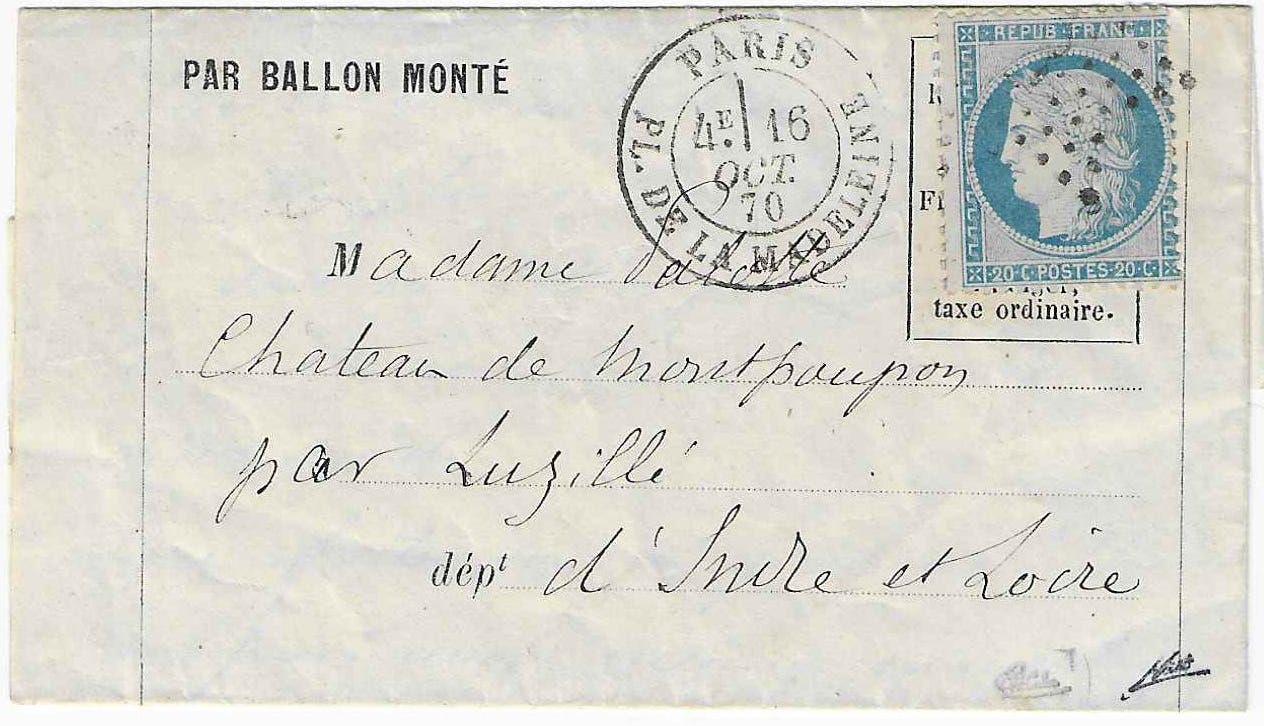 PAR BALLON MONTÉ
PARIS
4E 16
OCT.
70
PL. DE LA MADELEINE
REPUB. FRANC.
20 C. POSTES 20 C.
taxe ordinaire.
Madame
Chateau de Montpoupon
par Luzillé
dépt d'Indre et Loire